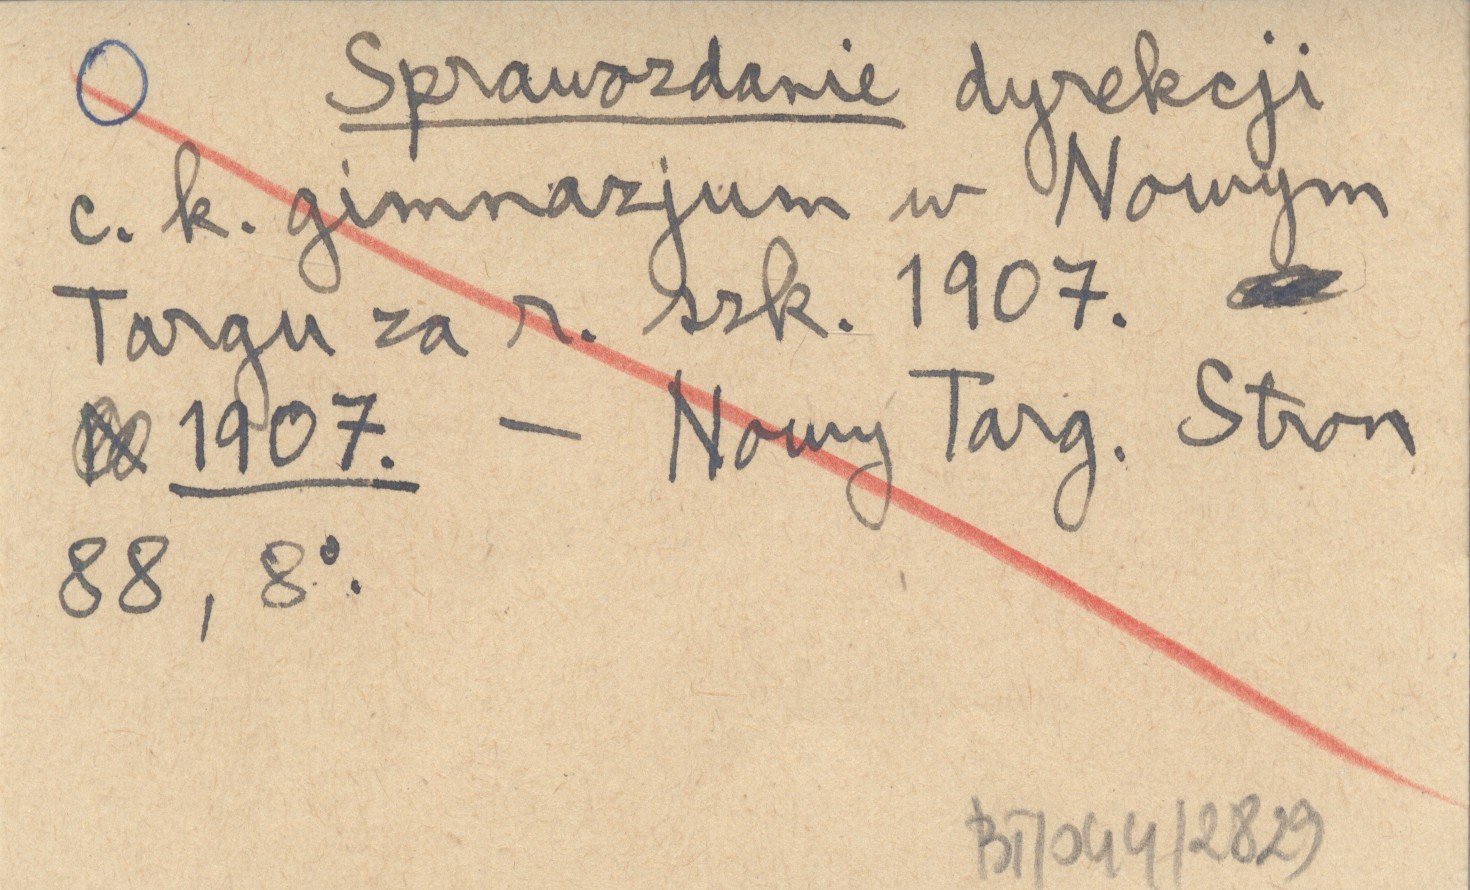 Sprawozdanie dyrekcji
c. k. gimnazjum w Nowym
Targu za r. szk. 1907.
1907. — Nowy Targ. Stron
88, 8°.
BT/044/2829